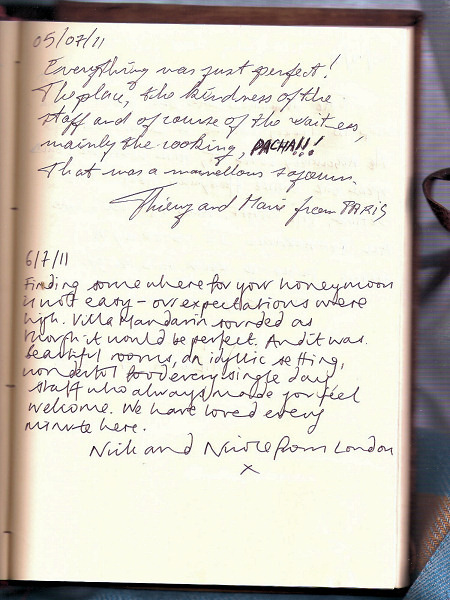 05/07/11
Everything was just perfect!
The place, the kindness of the
staff and of course of the waiters,
mainly the cooking, PACHA!!!
That was a marvellous sojourn.
Thierry and Marie from PARIS
6/7/11
Finding somewhere for your honeymoon
is not easy - our expectations were
high. Villa Mandarin sounded as
though it would be perfect. And it was.
beautiful rooms, an idyllic setting,
wonderful food every single day
staff who always made you feel
welcome. We have loved every
minute here.
Nick and Nicole from London
x